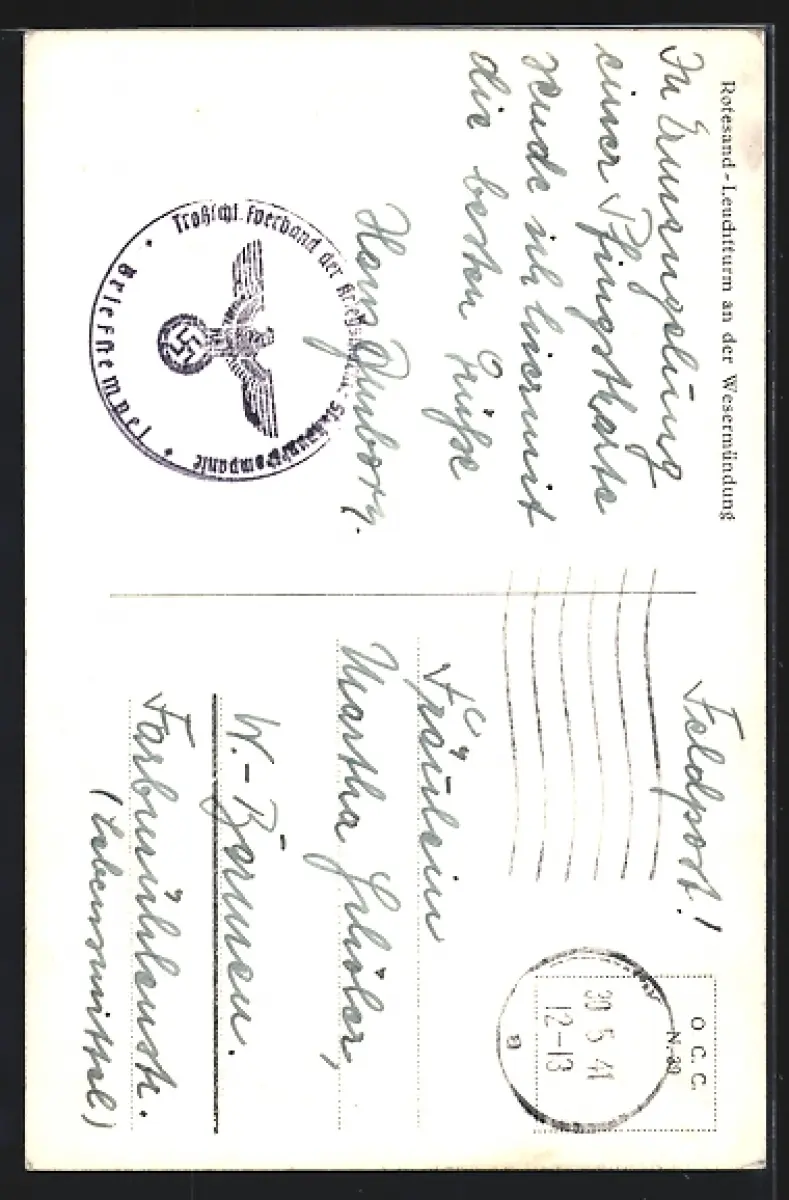 Rotesand-Leuchtturm an der Wesermündung
In Ermangelung
einer Pfingstkarte
sende ich hiermit
die besten Grüße
Hans
Troßschf. Fverband der Kriegsmarine
Briefstempel
Feldpost!
O. C. C.
N. 30
30 5 41
12-13
a
Fräulein
Martha
W.-Barmen.
Farbmühlenstr.
(Lebensmittel)